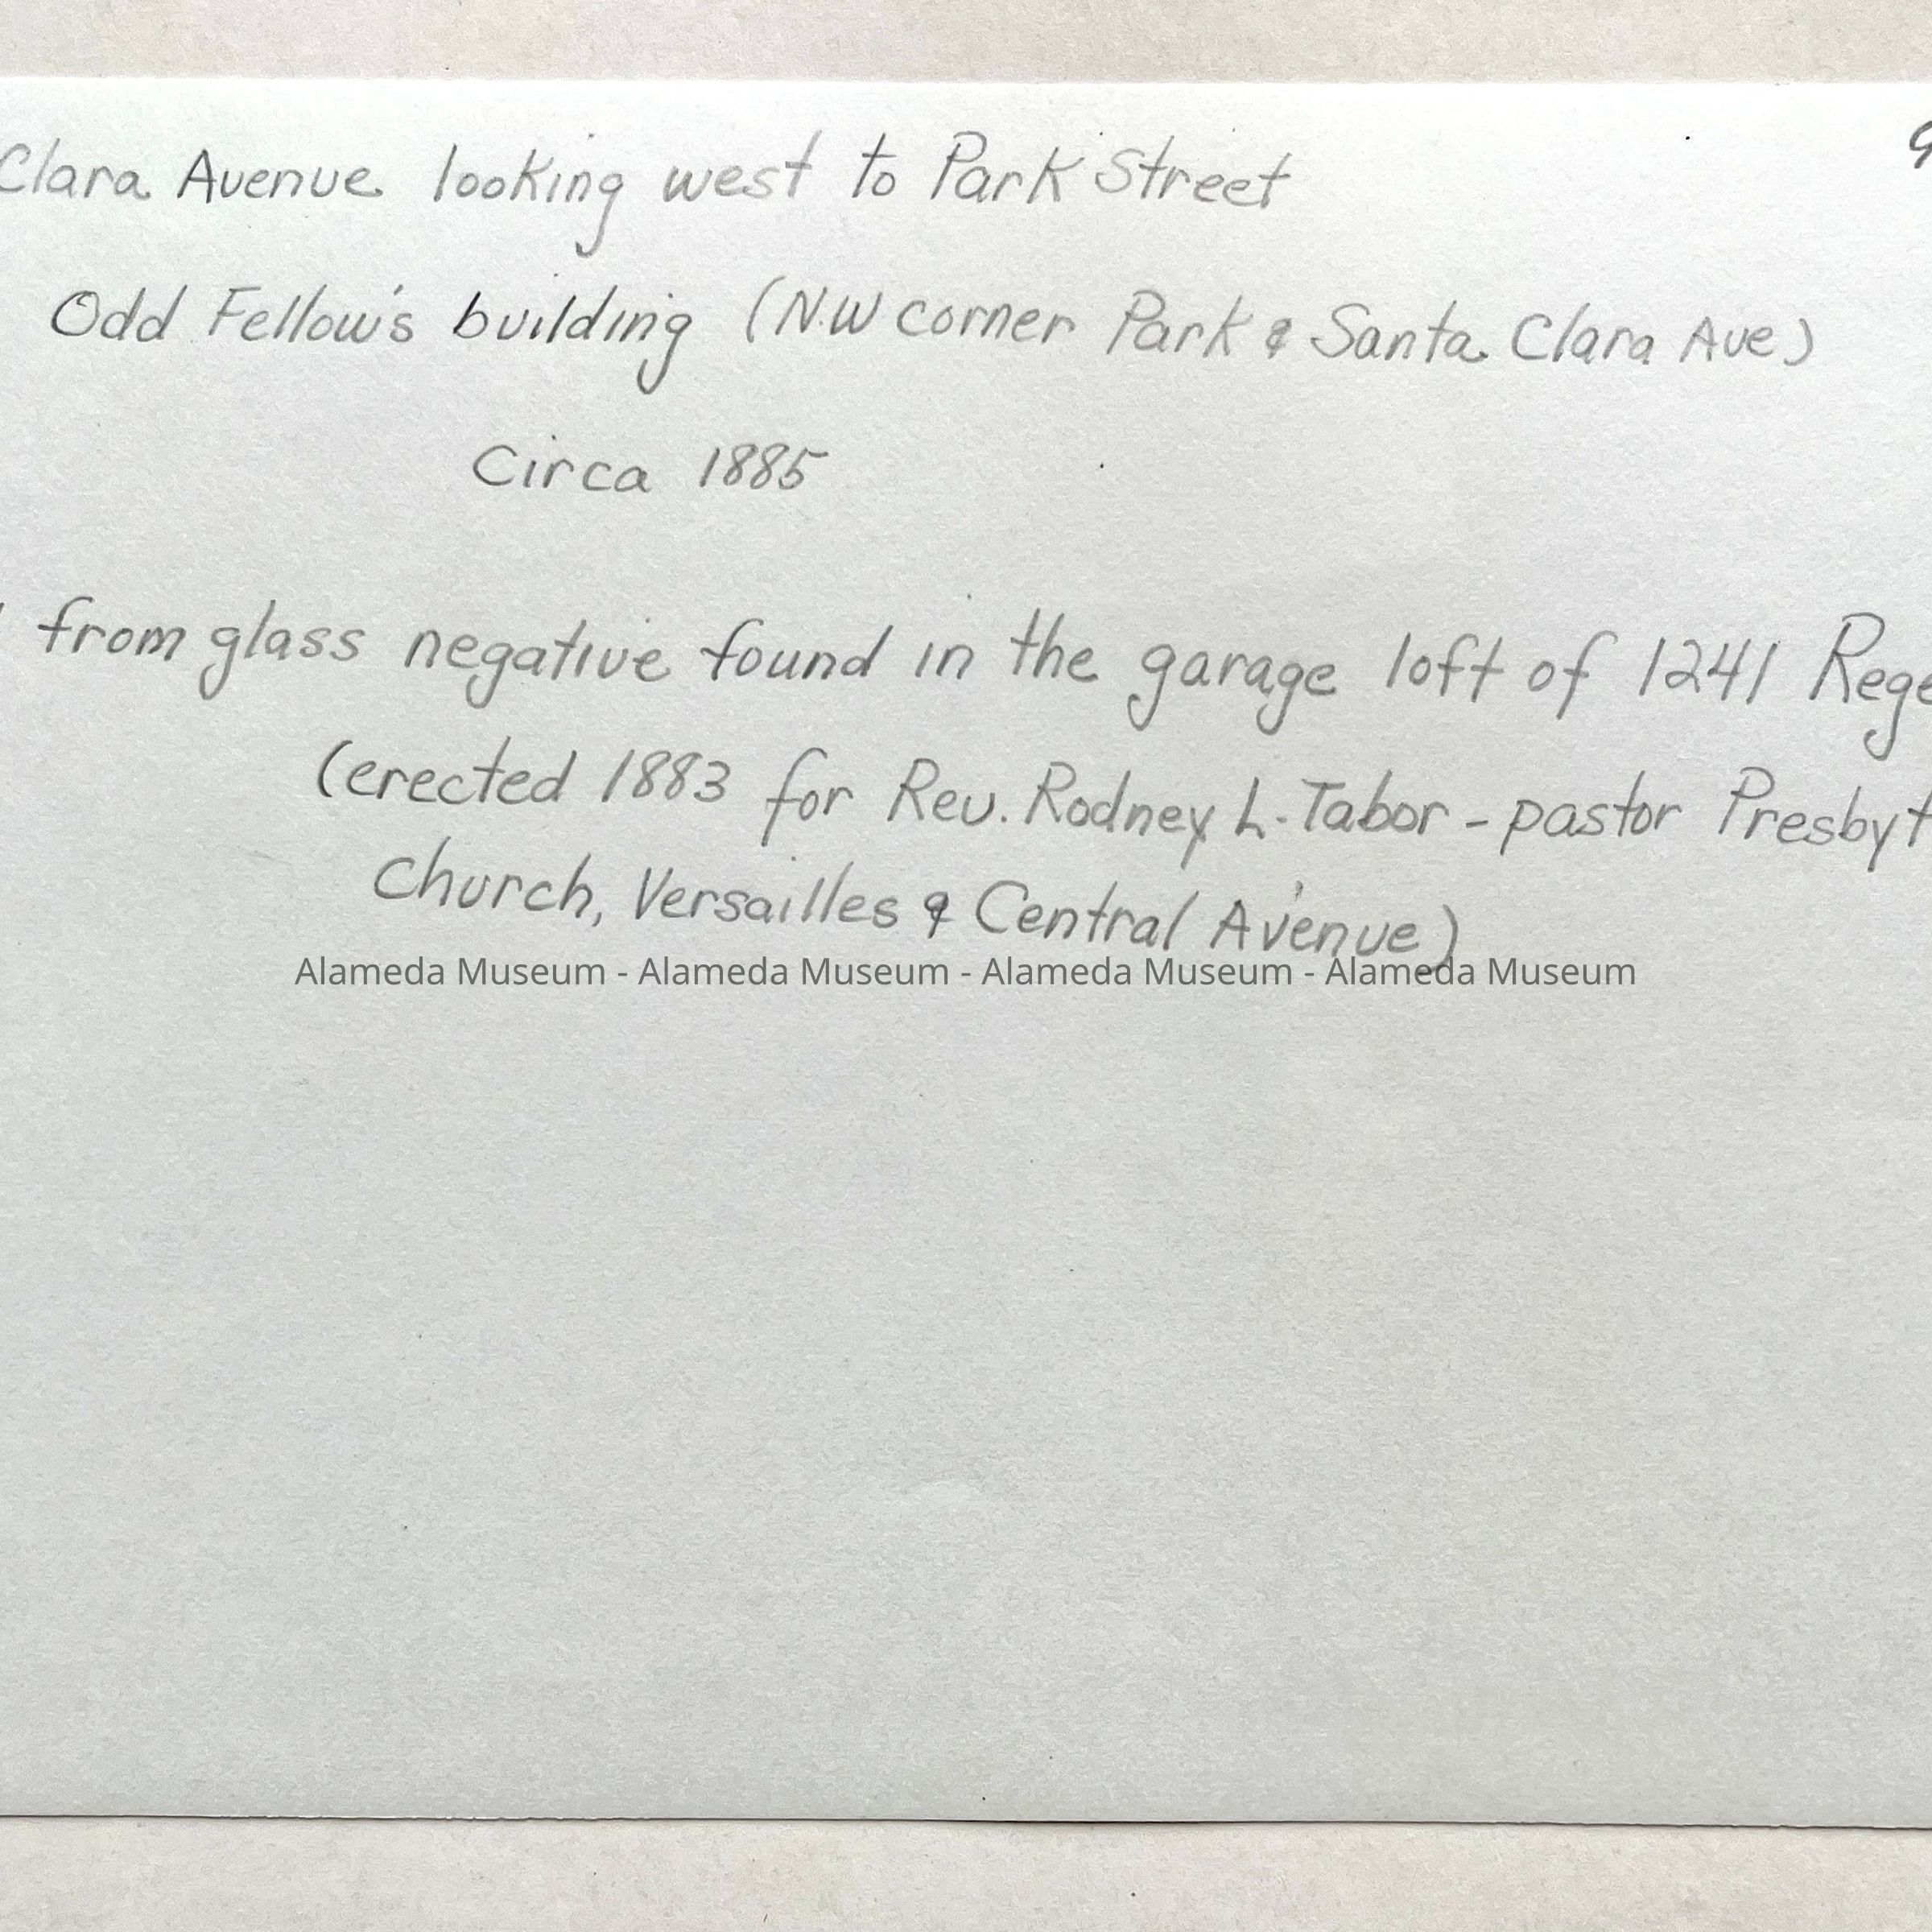 Clara Avenue looking west to Park Street
Odd Fellow's building (N.W corner Park & Santa Clara Ave)
Circa 1885
from glass negative found in the garage loft of 1241 Rege
(erected 1883 for Rev. Rodney L. Tabor - pastor Presbyt
Church, Versailles & Central Avenue)
Alameda Museum - Alameda Museum - Alameda Museum - Alameda Museum